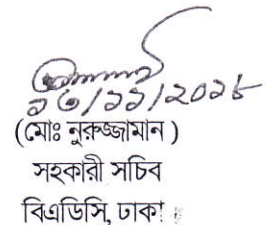 ২৩/১১/2০১৮
(মোঃ নুরুজ্জামান )
সহকারী সচিব
বিএডিসি, ঢাকা